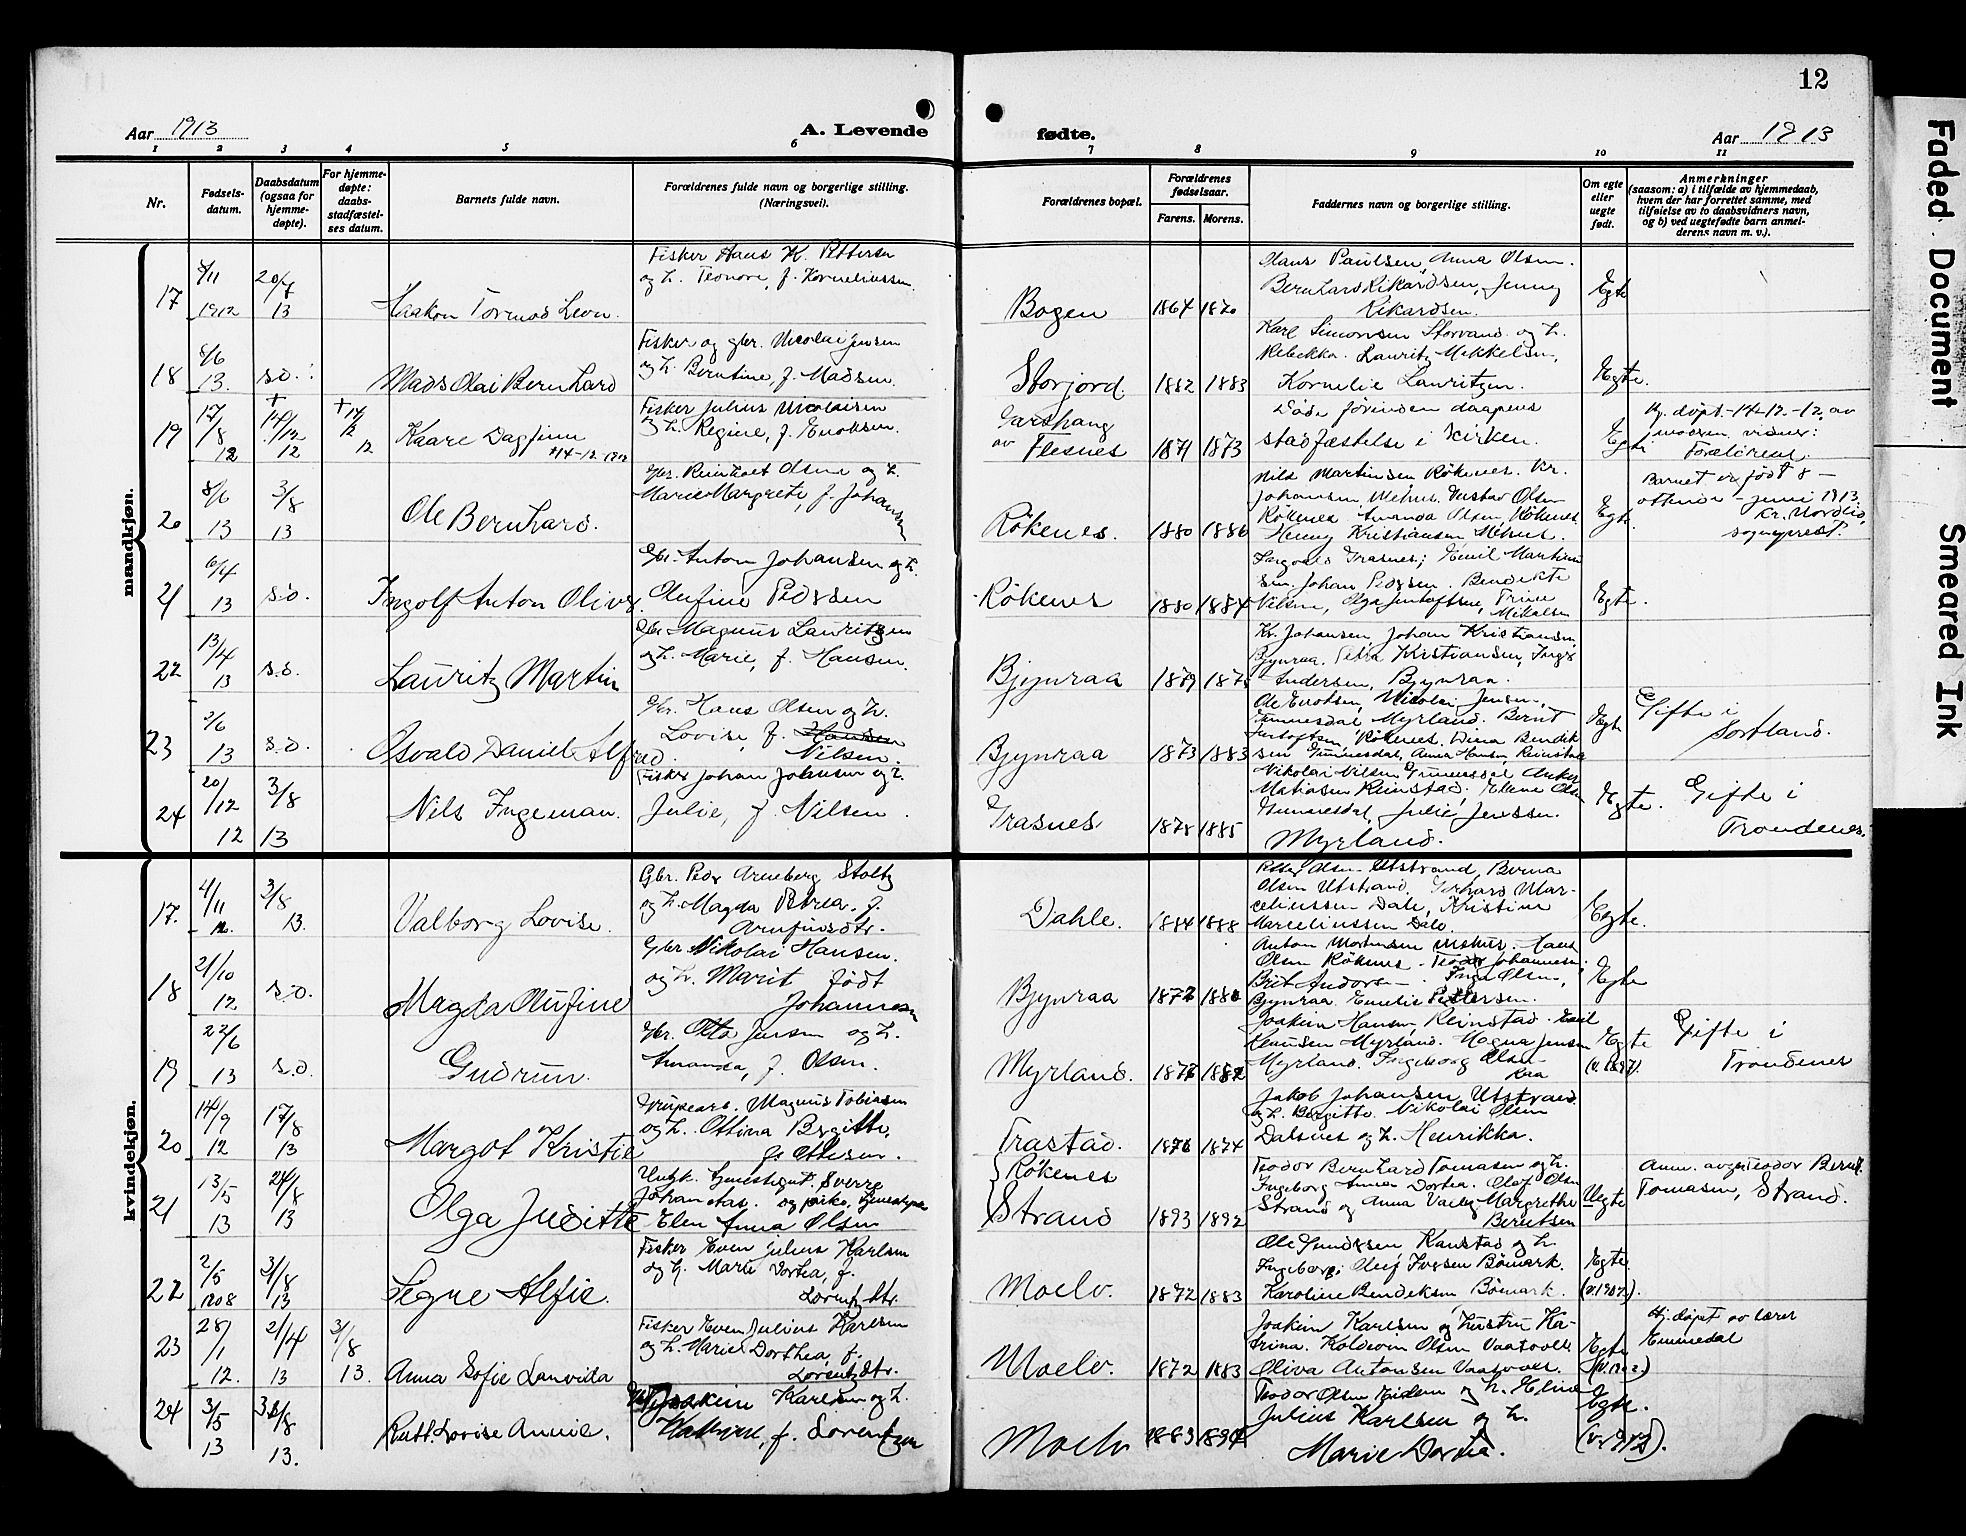 12
Aar 1913
A. Levende
fødte.
Aar 1913
1 2 3 4 5 6 7 8 9 10 11
Nr.
Fødsels-
datum.
Daabsdatum
(ogsaa for
hjemme-
døpte).
For hjemme-
døpte:
daabs-
stadfæstel-
ses datum.
Barnets fulde navn.
Forældrenes fulde navn og borgerlige stilling.
(Næringsvei).
Forældrenes bopæl.
Forældrenes
fødselsaar.
Farens. Morens.
Faddernes navn og borgerlige stilling.
Om egte
eller
uegte
født.
Anmerkninger
(saasom: a) i tilfælde av hjemmedaab,
hvem der har forrettet samme, med
tilføielse av to daabsvidners navn,
og b) ved uegtefødte barn anmel-
derens navn m. v.).
mandkjøn.
17
1912
20/7
13
Haakon Tormod Leon.
Fisker Hans K. Pettersen
og h. Leonore, f. Korneliussen.
Bogen
1864 1870
Olaus Paulsen, Anna Olsen.
Bernhard Rikardsen, Jenny
Rikardsen.
Egte
18
8/6
13.
s.d.
Mads Olai Bernhard
Fisker og gbr. Nicolai Jensen
og h. Berntine, f. Madsen.
Storjord
1882 1883
Karl Simonsen Storvand og h.
Rebekka. Lauritz Mikkelsen,
Kornelie Lauritzen.
Egte.
19
17/8
12
14/12
12
14/12
12
Kaare Dagfinn
14-12-1912
Fisker Julius Nicolaisen
og h. Regine, f. Enoksen.
av Flesnes
1871 1873
Døde førinden daapens
stadfæstelse i kirken.
Egte
Hj. døpt 14-12-12 av
moren. vidner:
Forældrene.
20
8/6
13
3/8
13
Ole Bernhard.
Gbr. Reinholt Olsen og h.
Marie Margrete, f. Johansen
Røkenes.
1880 1886
Nils Martinsen Røkenes. Kr.
Johansen Mehus. Gustav Olsen
Røkenes Amanda Olsen, Røkenes
Henny Kristiansen Mehus.
Egte
Barnet er født 8 –
ottende – juni 1913.
Kr. Nordlid,
sogneprest.
21
6/4
13
s.d.
Ingolf Anton Oliver
Gbr. Anton Johansen og h.
Olufine Pedersen
Røkenes
1880 1884
Ingvald Grasnes; Emil Martin-
sen. Johan Pedersen. Bendikte
Nilsen, Olga Jentoftsen, Trine
Mikalsen
Egte.
22
13/4
13
s.d.
Lauritz Martin
Gbr. Magnus Lauritzen
og h. Marie, f. Hansen.
Bjynraa
1879
Kr. Johansen, Johan Kristiansen
Bjynraa. Petra Kristiansen, Inga
Andersen, Bjynraa.
23
2/6
13
s.d.
Osvald Daniel Alfred.
Gbr. Hans Olsen og h.
Lovise, f. Hansen
Nilsen.
Bjynraa
1873 1883
Ole Enoksen, Nicolai Jensen,
Gunnesdal Myrland. Bernt
Jentoftsen, Røkenes. Dina Bendik-
sen Gunnesdal, Anna Hansen, Reinstad
Egte
Gifte i
Sortland.
24
20/12
12
3/8
13
Nils Ingeman.
Fisker Johan Johansen og h.
Julie, f. Nilsen.
Grasnes
1878 1885
Nikolai Nilsen Gunnesdal Anker
Matiasen Reinstad, Elene Olsen
Gunnesdal, Julie Jenssen.
Myrland.
Egte.
Gifte i
Trondenes.
kvindekjøn.
17.
4/11
12.
3/8
13.
Valborg Lovise.
Gbr. Peder Arneberg Stoltz
og h. Magda Petrea. f.
Arnfinsdtr.
Dahle.
1884 1888
Petter Olsen Utstrand, Berna
Olsen Utstrand. Gerhard Mar-
celiussen Dale, Kristine
Marceliussen Dale.
Egte.
18
21/10
12
s.d.
Magda Olufine
Gbr. Nikolai Hansen.
og h. Marit født
Johannesen
Bjynraa
1872 1880
Anton Mortensen Mehus. Hans
Olsen Røkenes. Teodor Johannesen,
Brit Anders– Inga Olsen,
Bjynraa. Emelie Pettersen.
Egte
19
22/6
13
s.d.
Gudrun.
Gbr. Otto Jensen og h.
Amanda, f. Olsen.
Myrland.
Joakim Hansen, Reinstad. Emil
Klausen Myrland. Magna Jensen
Myrland. Ingeborg Olsen
Kaa
Egte
(v. 1897).
Gifte i
Trondenes
20
14/9
12
17/8
13
Margot Kristie
Magnus Tobiasen
og h. Ottina Bergitte,
f. Ottesen.
Trastad.
1876 1874
Jakob Johansen, Utstrand
og h. Bergitte. Nikolai Olsen
Dalsnes og h. Henrikka.
21
13/5
13
24/8
13
Olga Juditte
Ungk. tjenestegut. Sverre
Johan Aas. og pike, tjenestepike
Elen Anna Olsen
Røkenes
Strand
1893 1892
Teodor Bernhard Tomasen og h.
Ingeborg Anna Dortea. Olaf Olsen
Strand og Anna Valborg Margrethe
Berntsen
Uegte
Anm. avgir Teodor Bernt.
Tomasen, Strand.
22
2/5
1908
3/8
13
Segne Alfie.
Fisker Even Julius Karlsen
og h. Marie Dortea, f.
Lorentzdtr.
Moelv.
1872 1883
Ole Gundersen Kanstad og h.
Ingeborg; Olef Iversen Bømark.
Karoline Bendiksen Bømark.
Egte
23
28/1
12.
2/4
13
3/8
13.
Anna Sofie Lanvida
Fisker Even Julius Karlsen
og h. Marie Dorthea, f.
Lorentzdtr.
Moelv.
1872 1883
Joakim Karlsen og hustru Ka-
trina. Koldevin Olsen Vaatvoll
Oliva Antonsen Vaatvoll.
Egte
Hj. døpt av lærer
Emmedal
24
3/5
13
/8
13.
Rutt Lovise Annie.
Joakim Karlsen og h.
f. Lorentzen
Moelv
1883
Teodor Olsen Eidem og h. Eline
Julius Karlsen og h.
Marie Dortea.
Egte.
(v. 1912).
Faded Document
Smeared Ink